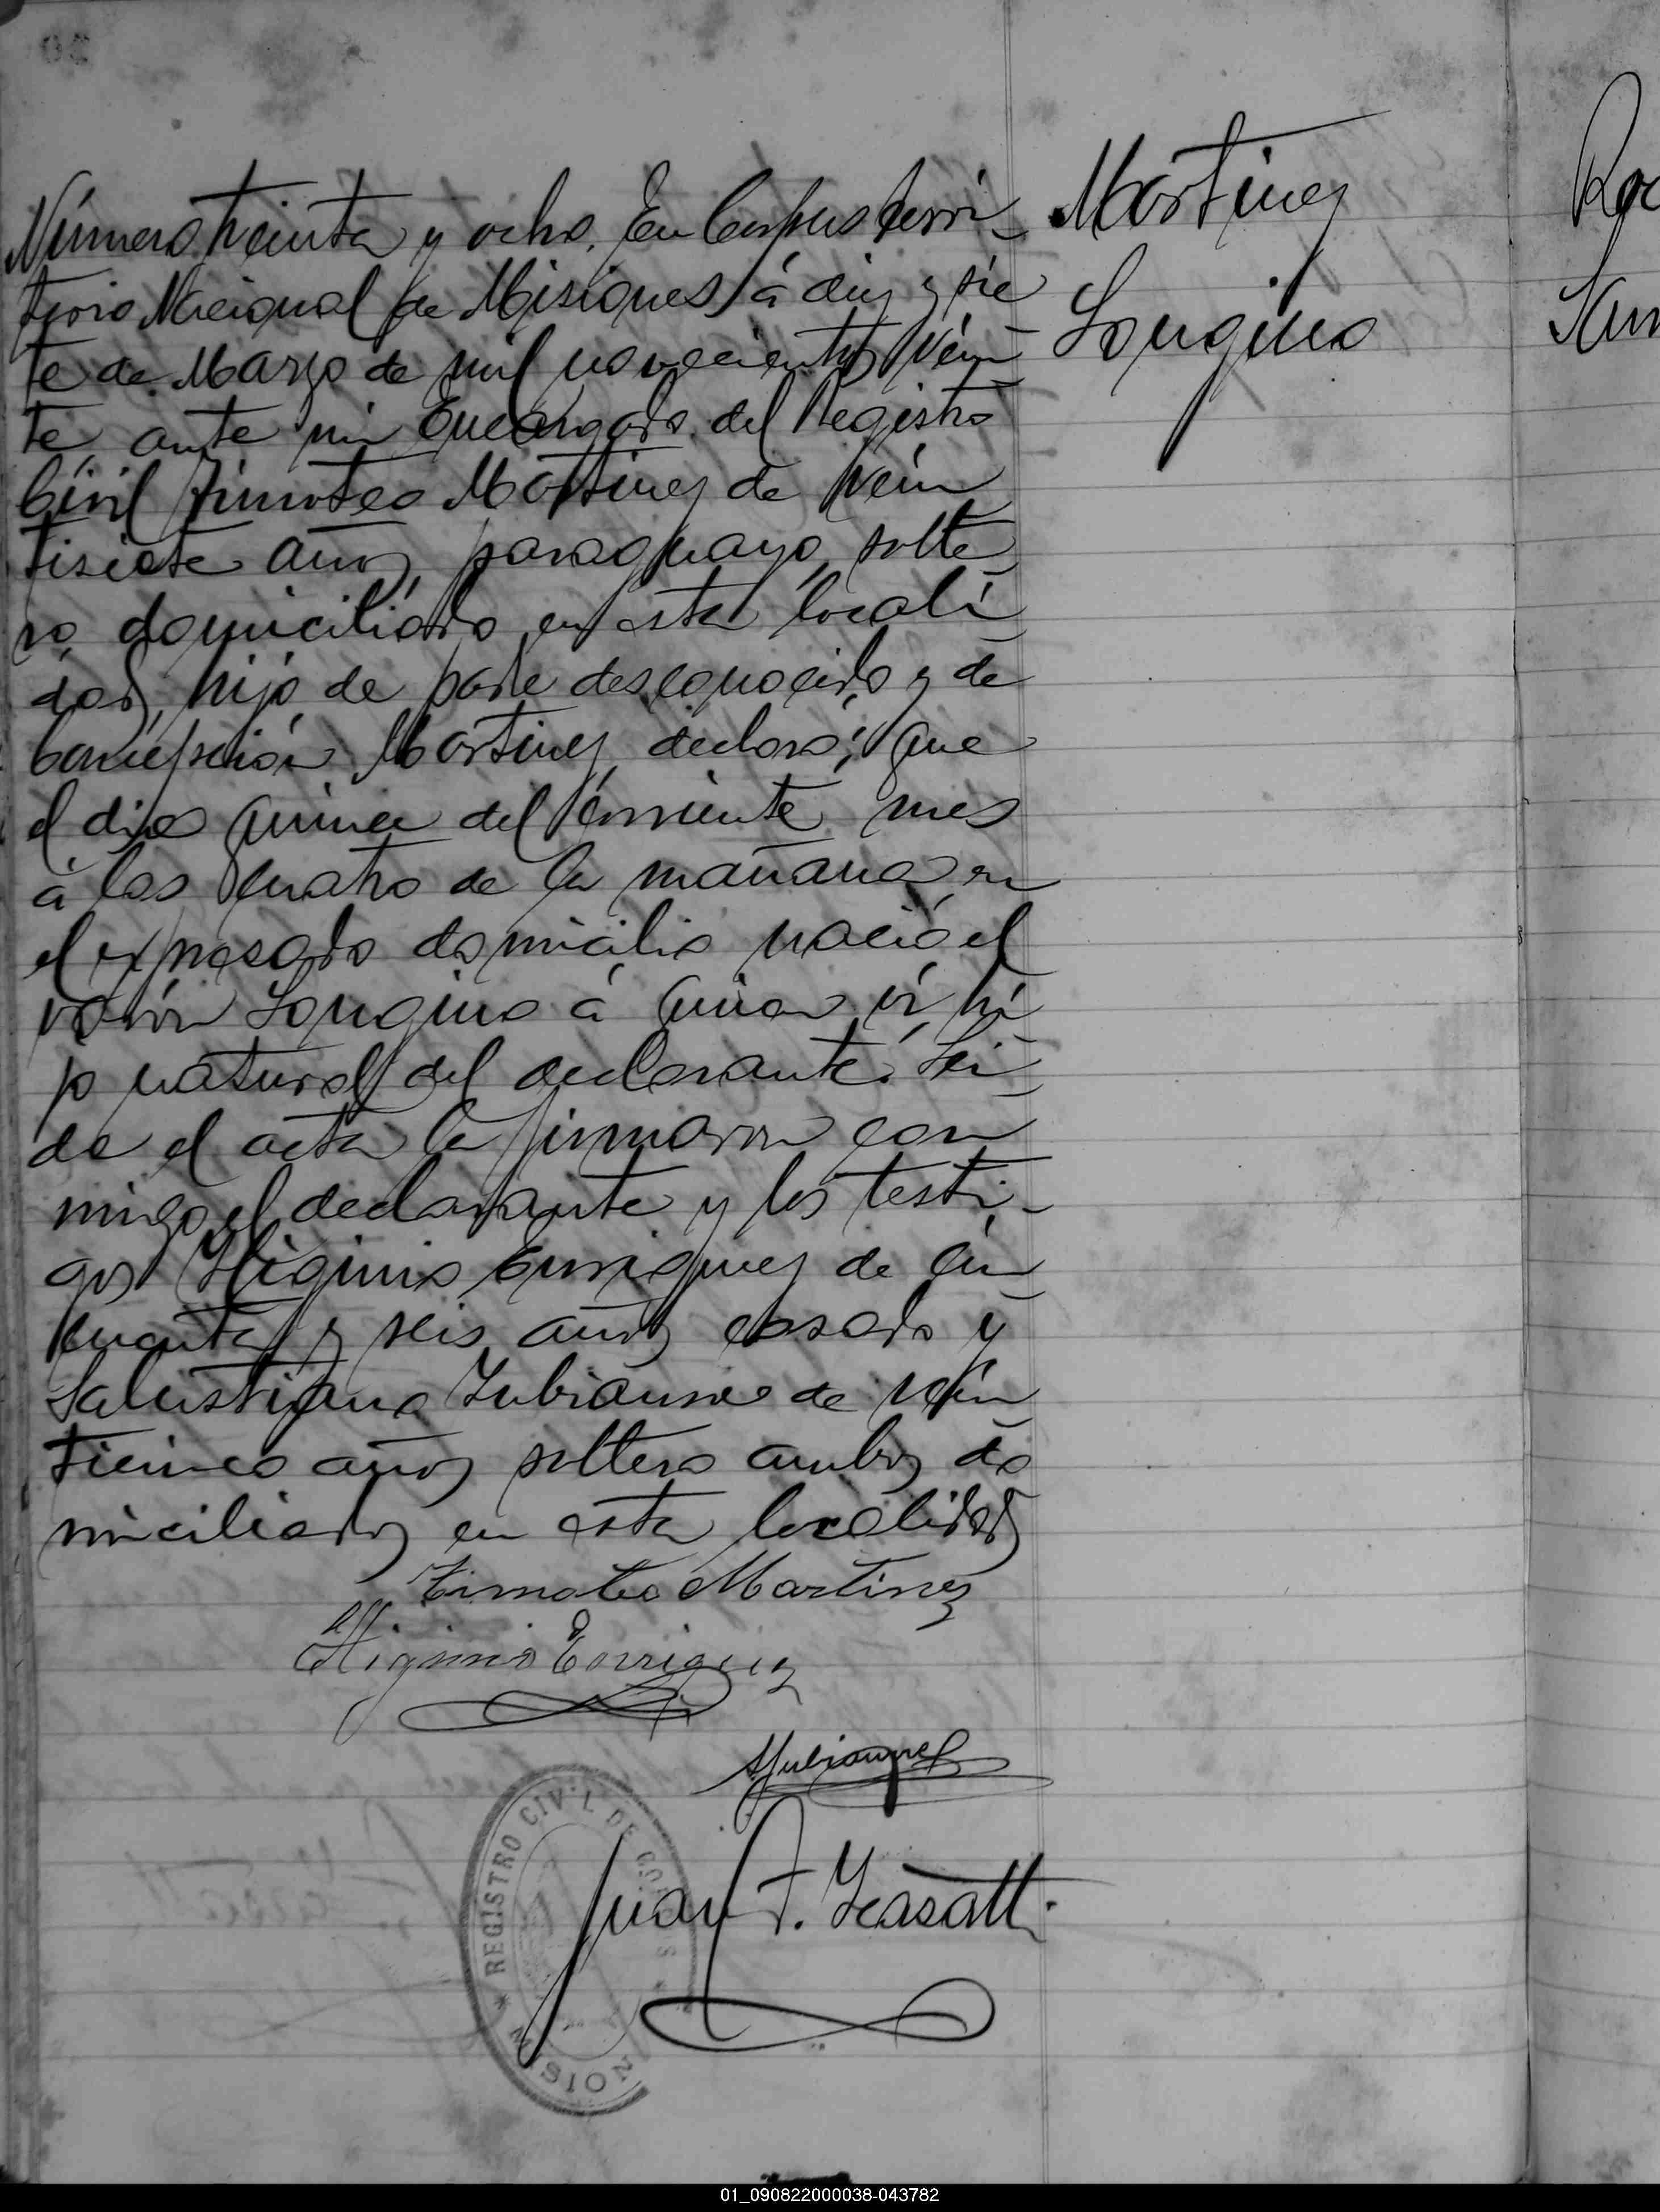 Número treinta y ocho. En Corpus terri-
torio Nacional de Misiones, á diez y sie
te de Marzo de mil novecientos vein-
te, ante mi Encargado del Registro
Civil Timoteo Martinez de vein
tisiete años, paraguayo, solte
ro, domiciliado en esta locali
dad, hijo de padre desconocido y de
Concepción Martinez, declaró; que
el dia quince del corriente mes
á las cuatro de la mañana en
el expresado domicilio nació el
varón Longino á quien ví, hi
jo natural del declarante. Lei-
da el acta la firmaron con
migo, el declarante y los testi-
gos Higinio Enriquez de cin
cuenta y seis años casado y
Salustiano de vein
ticinco años soltero ambos do
miciliados en esta localidad
Timoteo Martinez
Higinio Enriquez
Juan F.
Martinez
Longino
Roc
REGISTRO CIVIL DE CORPUS * MISIONES *
01_090822000038-043782